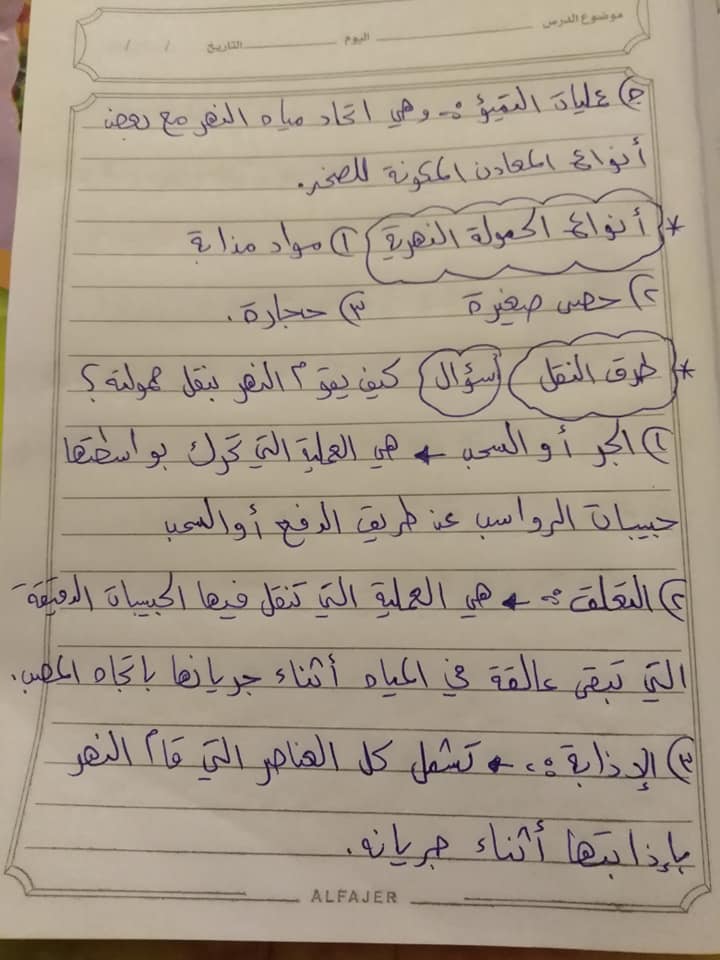 موضوع الدرس اليوم التاريخ / /
ج) عمليات التميؤ :- وهي اتحاد مياه النهر مع بعض
أنواع المعادن المكونة للصخر.
* أنواع الحمولة النهرية ١) مواد مذابة
٢) حصى صغيرة ٣) حجارة.
* طرق النقل سؤال كيف يقوم النهر بنقل حمولته ؟
١) الجر أو السحب ← هي العملية التي تحرك بواسطتها
حبيبات الرواسب عن طريق الدفع أو السحب
٢) التعلق :- ← هي العملية التي تنقل فيها الحبيبات الدقيقة
التي تبقى عالقة في المياه أثناء جريانها باتجاه المصب.
٣) الإذابة :- ← تشمل كل العناصر التي قام النهر
بإذابتها أثناء جريانه.
ALFAJER